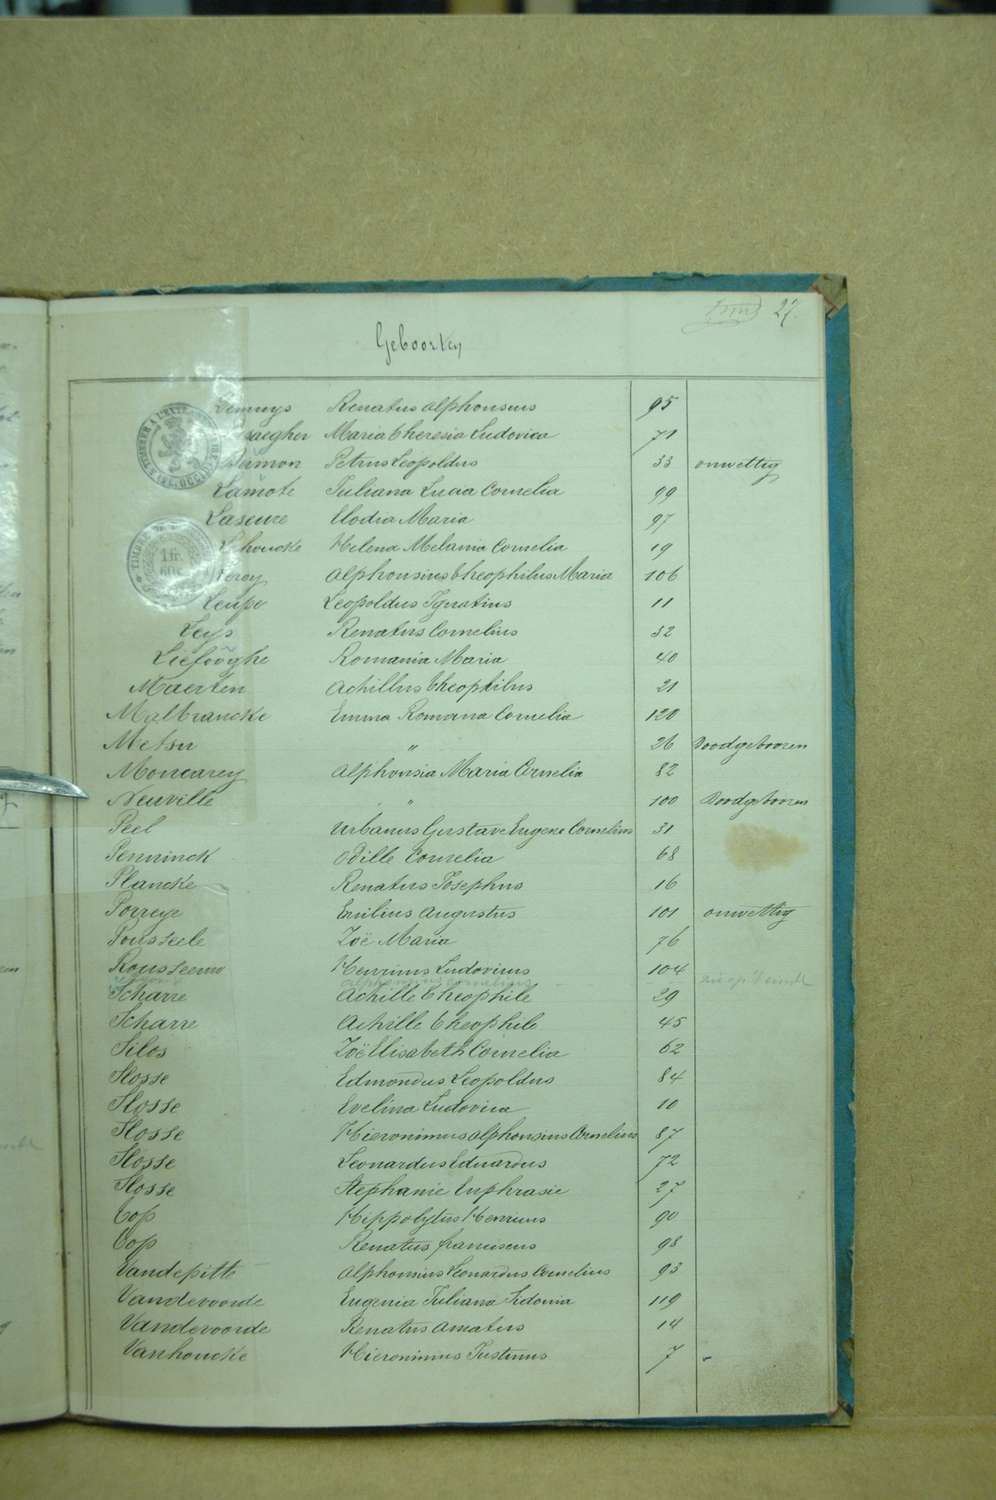 27.
Geboorten
Renatus Alphonsus 95
Maria Theresia Ludovica 71
Petrus Leopoldus 33 onwettig
Lamote Juliana Lucia Cornelia 99
Laseure Elodia Maria 97
Helena Melania Cornelia 19
Alphonsius Theophilus Maria 106
Leupe Leopoldus Ignatius 11
Leys Renatus Cornelius 32
Liefooghe Romania Maria 40
Maerten Achillus Theophilus 21
Malbrancke Emma Romana Cornelia 120
Metsu " 26 Doodgebooren
Moncarey Alphonsia Maria Cornelia 82
Neuville " 100 Doodgebooren
Peel Urbanus Gustave Eugene Cornelius 31
Penninck Odille Cornelia 68
Plancke Renatus Josephus 16
Porreye Emilius Augustus 101 onwettig
Pousseele Zoë Maria 76
Rousseeuw Henricus Ludovicus 104
Scharre Achille Theophile 29
Scharre Achille Theophile 45
Silos Zoë Elisabeth Cornelia 62
Slosse Edmondus Leopoldus 84
Slosse Evelina Ludovica 10
Slosse Hieronimus Alphonsius Cornelius 87
Slosse Leonardus Eduardus 72
Slosse Stephanie Euphrasie 27
Top Hippolytus Henricus 90
Top Renatus Franciscus 98
Vandepitte Alphonsius Leonardus Cornelius 93
Vandevoorde Eugenia Juliana Sidonia 119
Vandevoorde Renatus Amatus 14
Vanhoucke Hieronimus Justinus 7